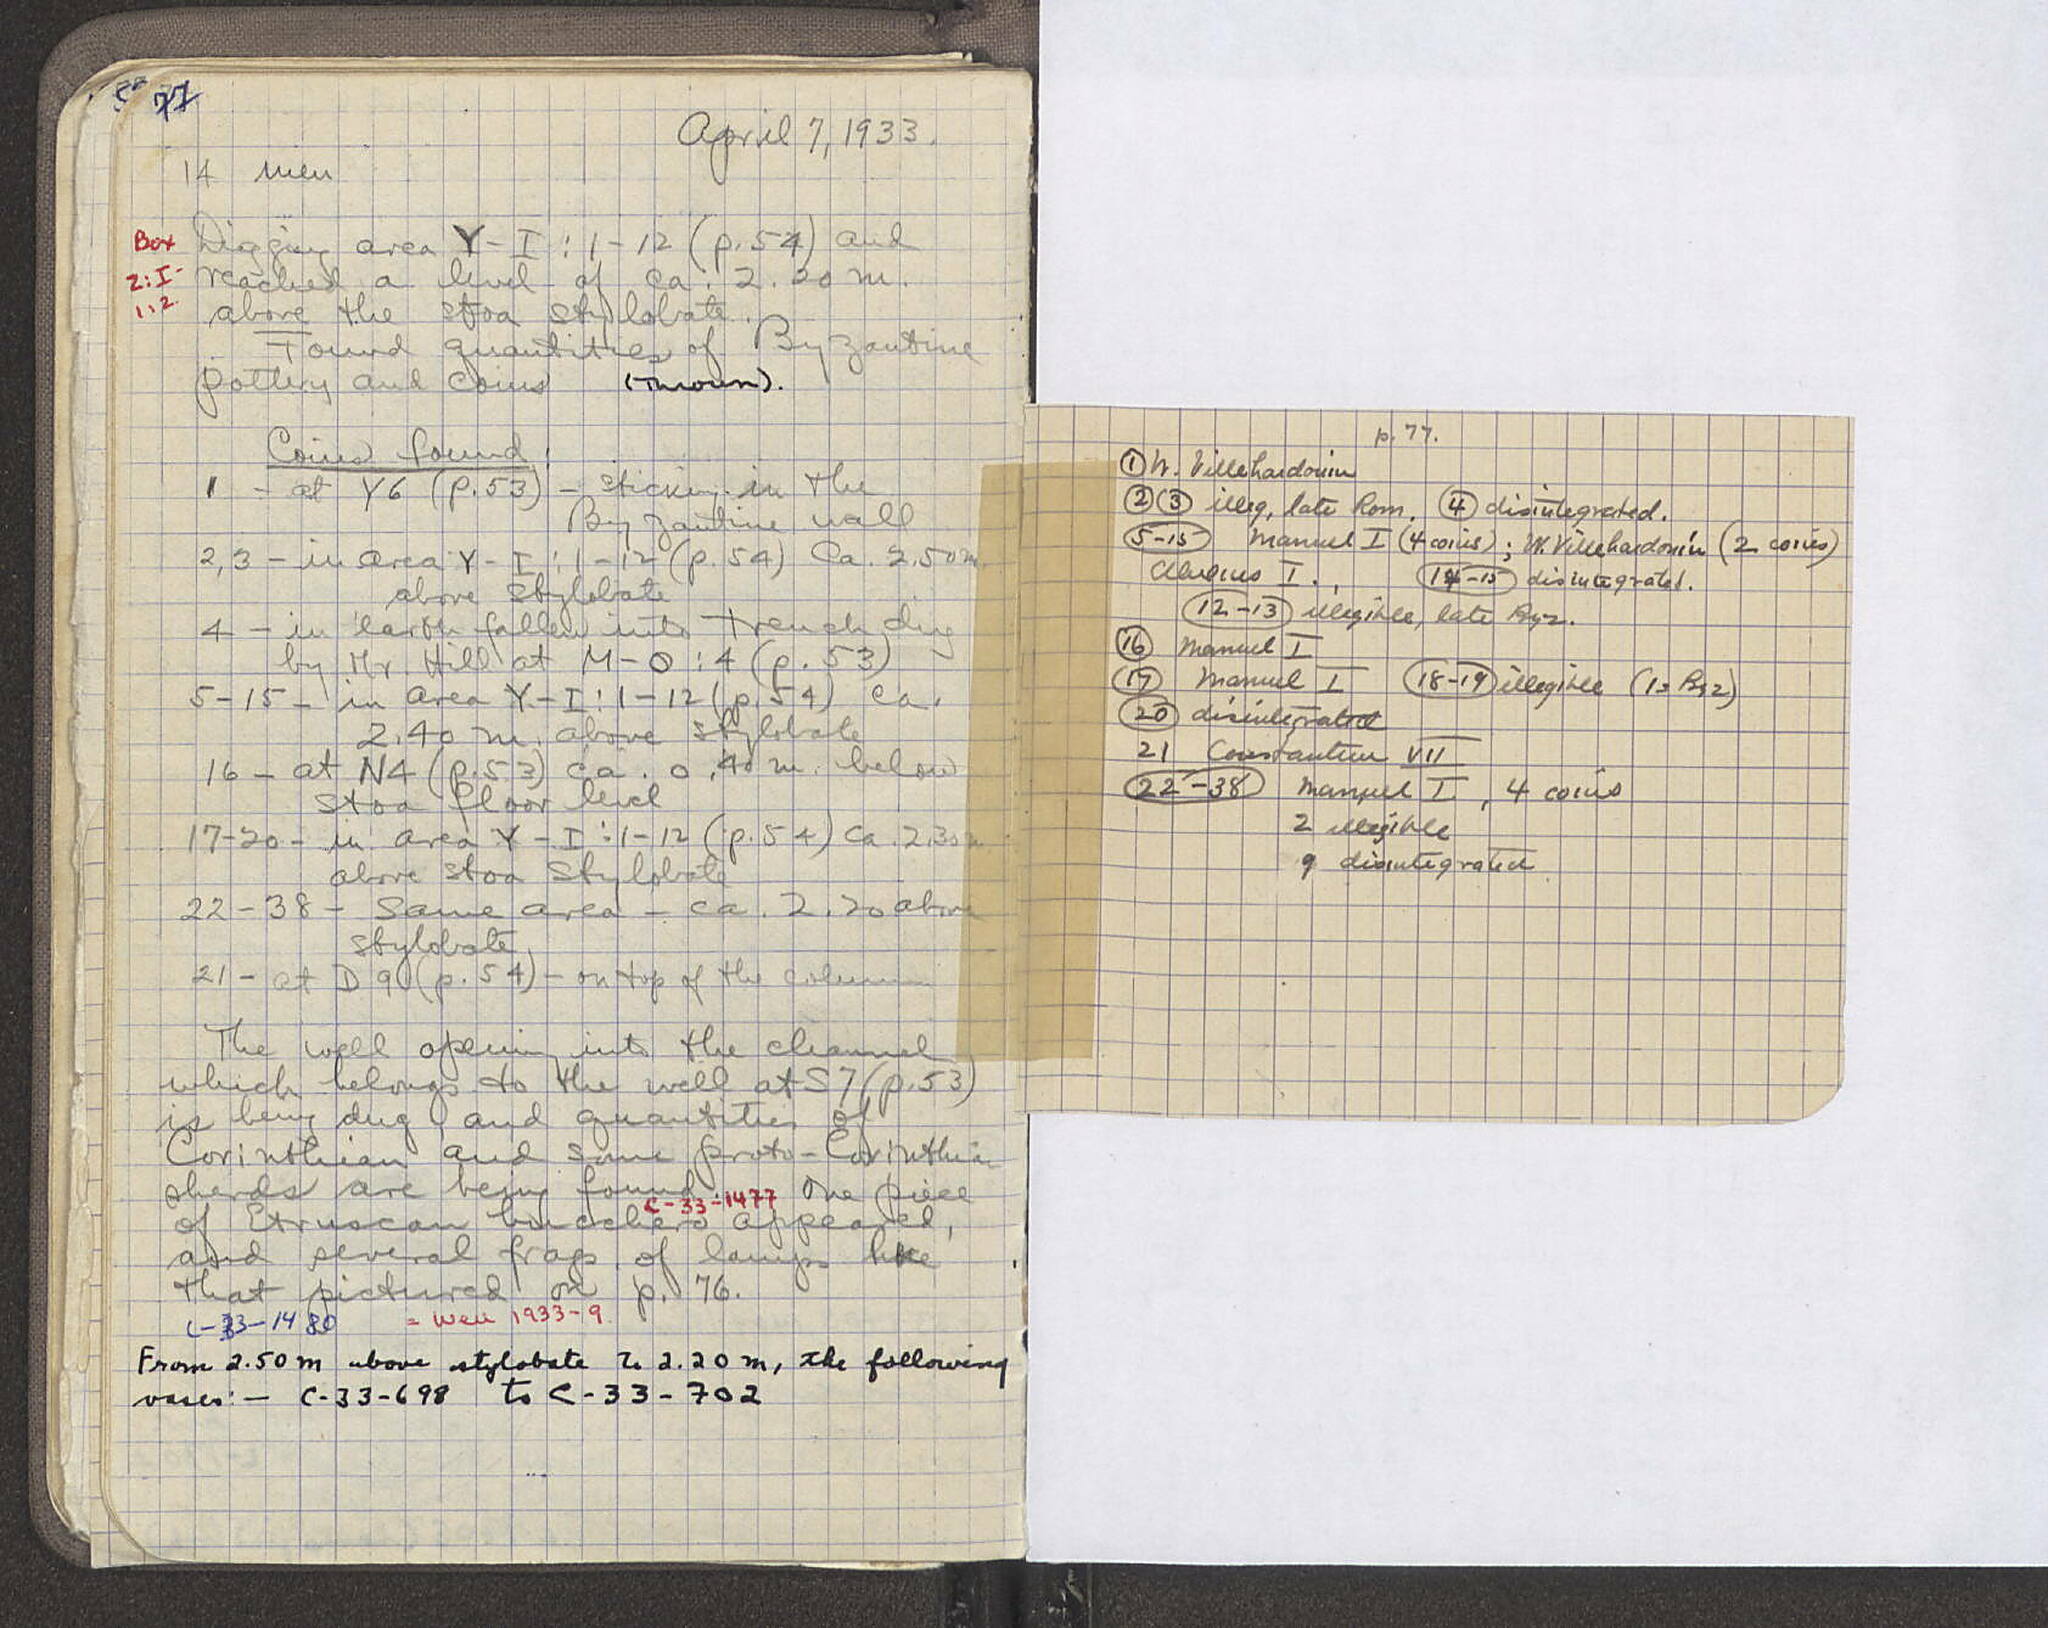 77
April 7, 1933.
14 men
Box
2:I-
1:2
Digging area Y-I:1-12 (p.54) and
reached a level of ca. 2.20 m.
above the stoa stylobate.
Found quantities of Byzantine
pottery and coins (thrown).
Coins found:
1 - at Y6 (p.53) - sticking in the
Byzantine wall
2,3 - in area Y-I:1-12 (p.54) Ca. 2.50 m
above stylobate
4 - in earth fallen into trench dug
by Mr. Hill at M-O:4 (p.53)
5-15 - in area Y-I:1-12 (p.54) ca.
2.40 m. above stylobate
16 - at N4 (p.53) ca. 0.40 m. below
stoa floor level
17-20 - in area Y-I:1-12 (p.54) Ca. 2.30 m
above stoa stylobate
22-38 - same area - ca. 2.20 above
stylobate
21 - at D9 (p.54) - on top of the column
The well opening into the channel
which belongs to the well at S7 (p.53)
is being dug and quantities of
Corinthian and some proto-Corinthian
sherds are being found. One piece
C-33-1477
of Etruscan bucchero appeared,
and several frags of lamps like
that pictured on p. 76.
C-33-1480 = Well 1933-9
From 2.50 m above stylobate to 2.20 m, the following
vases:- C-33-698 to C-33-702
p. 77.
① W. Villehardouin
② ③ illeg, late Rom. ④ disintegrated.
5-15 Manuel I (4 coins); W. Villehardouin (2 coins)
Alexius I. 14-15 disintegrated.
12-13 illegible, late Byz.
16 Manuel I
17 Manuel I 18-19 illegible (1 = Byz)
20 disintegrated
21 Constantine VII
22-38 Manuel I, 4 coins
2 illegible
9 disintegrated